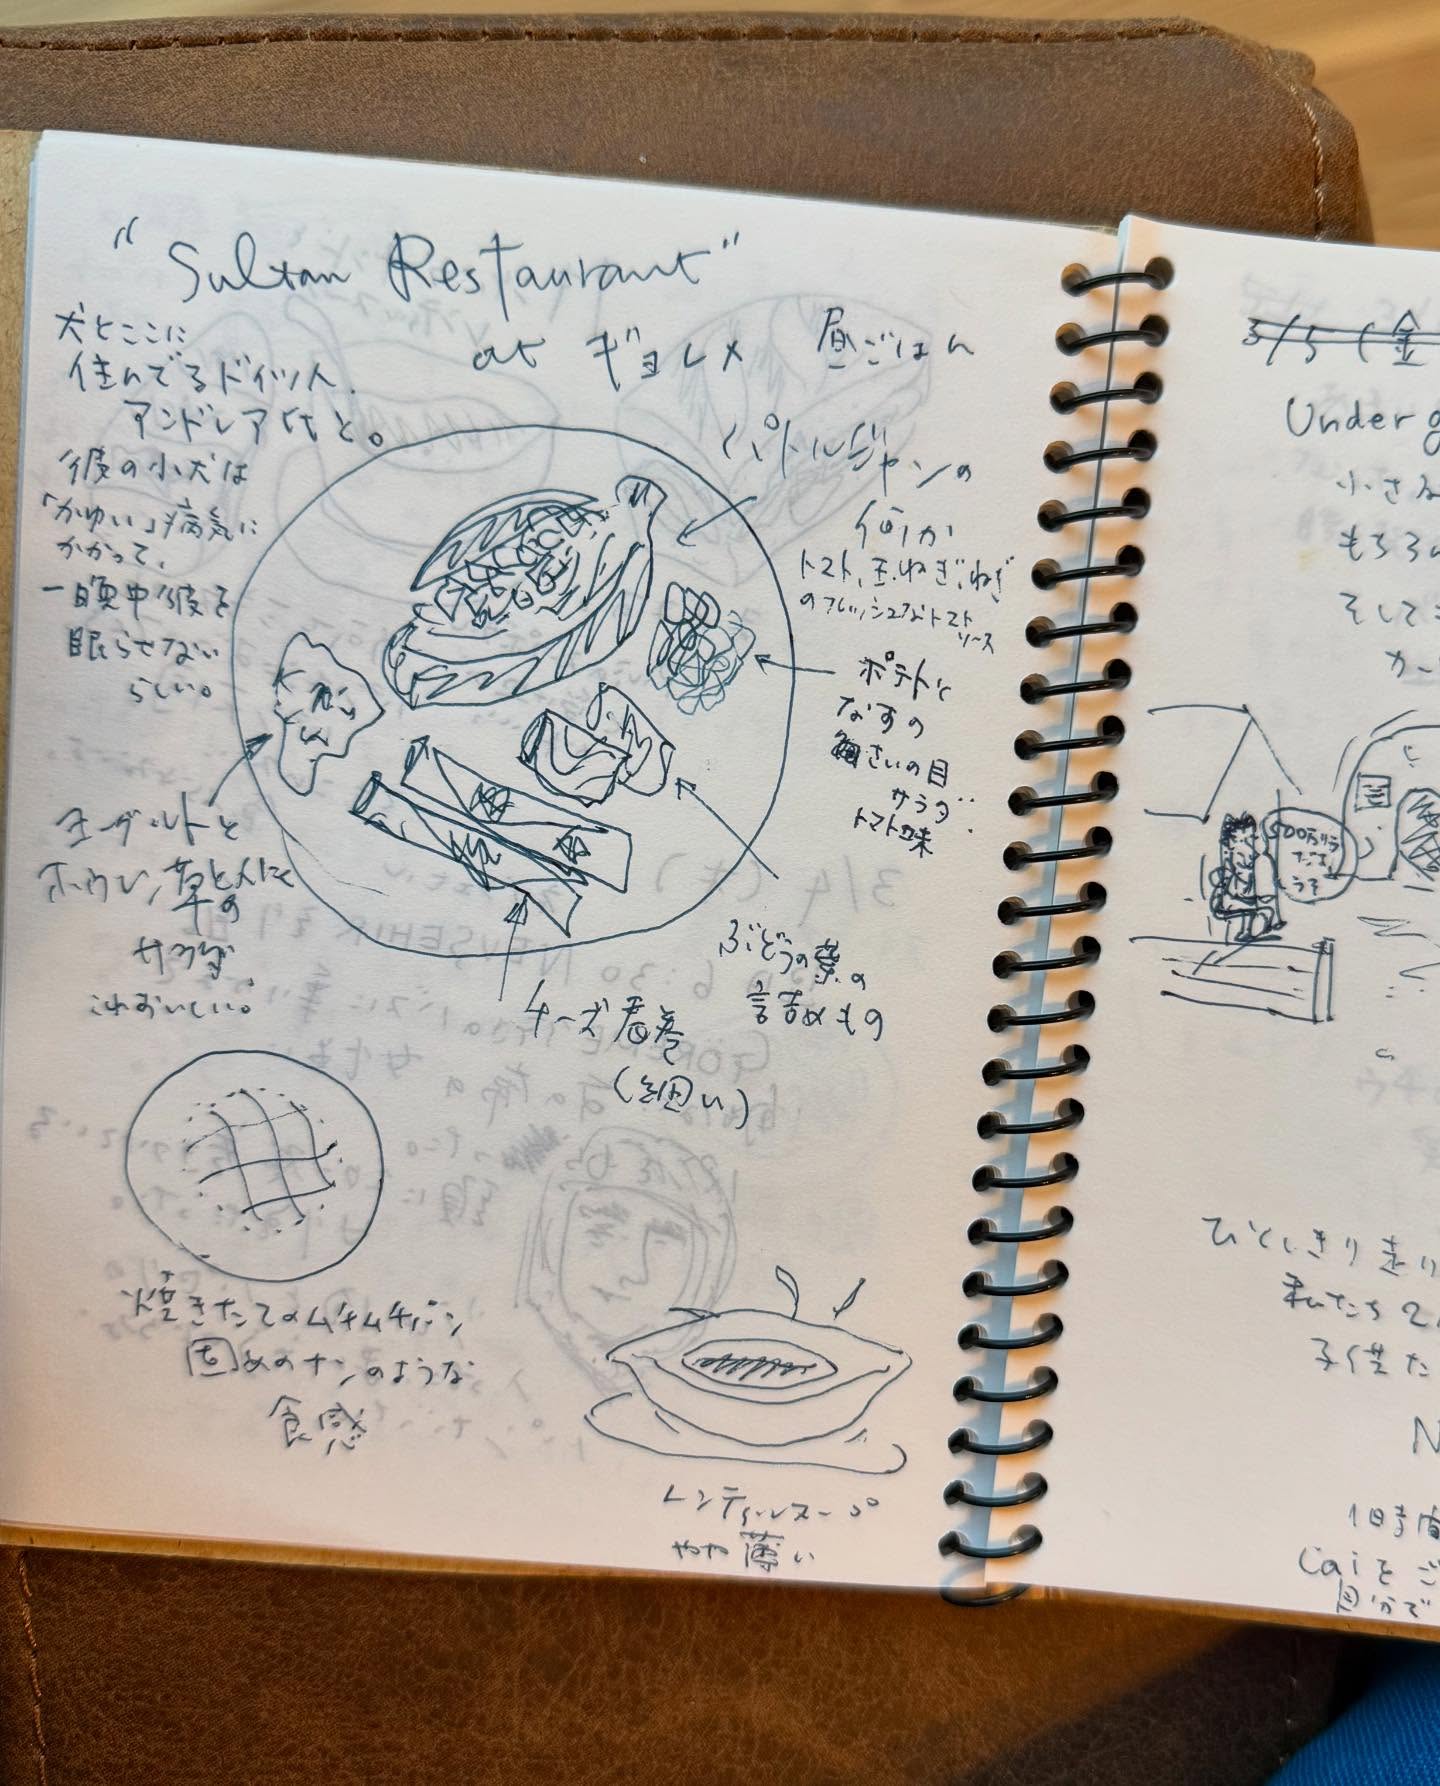 "Sultan Restaurant"
at ギョレメ 昼ごはん
犬とここに
住んでるドイツ人、
アンドレアたちと。
彼の小犬は
「かゆい」病気に
かかって、
一晩中彼を
眠らせない
らしい。
パトルジャンの
何か
トマト、玉ねぎ、ねぎ
のフレッシュなトマト
ソース
ポテトと
なすの
さいの目
サラダ
トマト味
ヨーグルトと
ホウレン草とにんにくの
サラダ
これおいしい。
ぶどうの葉の
詰めもの
チーズ春巻
(細い)
焼きたてのムチムチパン
固めのナンのような
食感
レンティルスープ
やや薄い
3/5 (金
Under g
小さな
もちろん
そしても
カー
500万リラ
だよ
うそ
ひとしきり走り
私たち2
子供た
N
1時間
Çaiをご
自分で